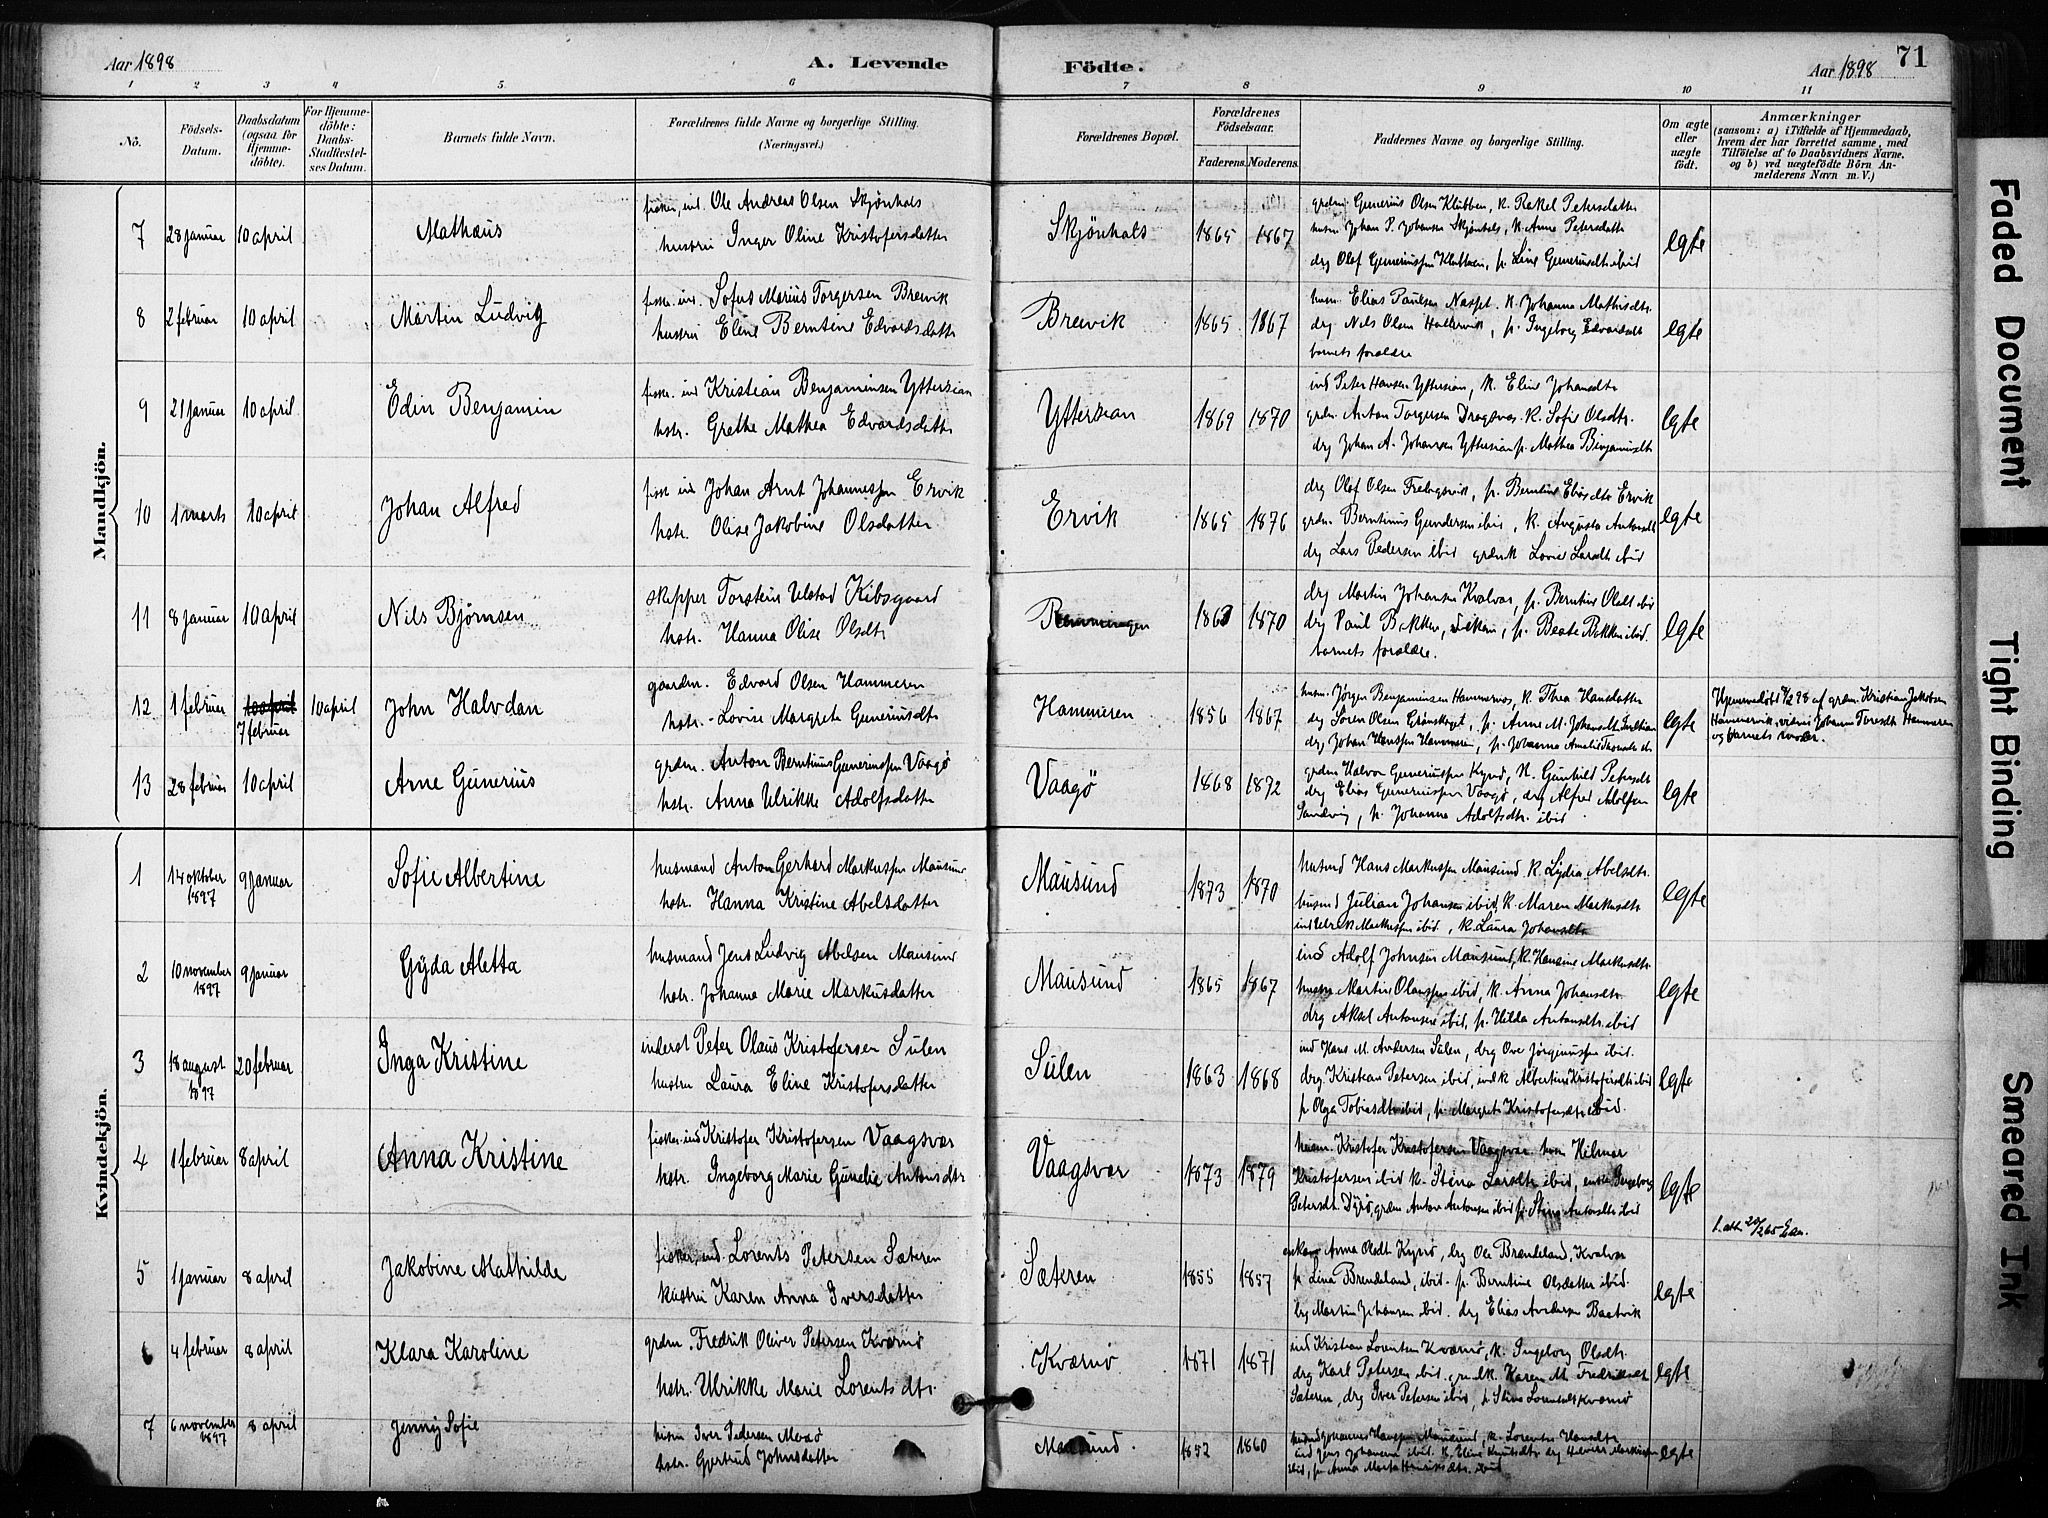 Aar 1898
A. Levende
Födte.
Aar 1898
71
1 2 3 4 5 6 7 8 9 10 11
No.
Födsels-Datum.
Daabsdatum (ogsaa for Hjemme-döbte).
For Hjemme-döbte: Daabs-Stadfæstel-ses Datum.
Barnets fulde Navn.
Forældrenes fulde Navne og borgerlige Stilling.
(Næringsvei.)
Forældrenes Bopæl.
Forældrenes Födselsaar.
Faderens. Moderens.
Faddernes Navne og borgerlige Stilling.
Om ægte eller uægte födt.
Anmærkninger
(saasom: a) i Tilfælde af Hjemmedaab, hvem der har forrettet samme, med Tilföielse af to Daabsvidners Navne. og b) ved uægtefödte Börn An-melderens Navn m. V.)
Mandkjön.
7 28 januar 10 april Mathæus
fisker, ind. Ole Andreas Olsen Skjønhals
hustru Inger Oline Kristofersdatter
Skjönhals 1865 1867
grdm. Gunerius Olsen Klubben, k. Rakel Petersdatter
husm. Johan P. Johansen Skjönhals, k. Anna Petersdatter
drg Olaf Guneriussen
egte
8 2 februar 10 april Martin Ludvig
fisker. ind. Sofus Marius Torgersen Brevik
hustru Eline Berntine Edvardsdatter
Brevik 1865 1867
husm. Elias Paulsen k. Johanna Mathisdtr.
drg. Nils Olsen p. Ingeborg Edvardsdtr
barnets forældre
egte
9 21 januar 10 april Edin Benjamin
fisker. ind Kristian Benjaminsen Ytterian
hstr. Grethe Mathea Edvardsdatter
Ytterian 1869 1870
ind Peter Hansen Ytterian, k. Eline Johansdtr
grdm. Anton Torgersen Dragsvas. k. Sofie Olsdtr.
drg Johan A. Johansen Ytterian p. Mathea Benjaminsdtr
egte
10 1 marts 10 april Johan Alfred
fisk ind Johan Arnt Johannessen Ervik
hstr. Olise Jakobine Olsdatter
Ervik 1865 1876
drg Olaf Olsen p. Berntine Eliasdtr Ervik
grdm. Berntinus Gundersen ibid, k. Augusta Antonsdtr
drg Lars Pedersen ibid Larsdtr ibid
egte
11 8 januar 10 april Nils Bjørnsen
skipper Torstein Ulstad Kibsgaard
hstr. Hanna Olise Olsdtr
1863 1870
drg Martin Johansen Kvalvær, p. Berntine Olsdtr ibid
drg Paul Bekken, p. Beate Bekken ibid.
barnets forældre.
egte
12 1 februar 10 april 7 februar 10 april John Halvdan
gaardm. Edvard Olsen Hammeren
hstr. Lovise Margrete Guneriusdtr
Hammeren 1856 1867
husm. Jørgen Benjaminsen k. Thea Hansdatter
drg Søren Olsen p. Anne M. Johansdtr
drg. Johan Hansen Hammeren, p. Johanna Amalie
egte
Hjemmedøbt 7/2 98 af grdm. Kristian Jakobsen
Hammervik, vidner Johanna Hammeren
og barnets moder.
13 28 februar 10 april Arne Gunerius
grdm. Anton Berntinus Guneriussen Vaagø
hstr. Anna Ulrikke Adolfsdatter
Vaagö 1868 1872
grdm Halvor Guneriussen k. Gunhild Petersdtr
drg Elias Guneriussen Vaagø, drg Alfred Adolfsen
Sandvig, p. Johanna Adolfsdtr. ibid
egte
Kvindekjön.
1 14 oktober 1897 9 januar Sofie Albertine
husmand Anton Gerhard Markussen Mausund
hstr. Hanna Kristine Abelsdatter
Mausund 1873 1870
husmd Hans Markussen Mausund k. Lydia Abelsdtr.
husmd Julian Johansen ibid, k. Maren Markusdtr
Markussen ibid, k. Laura Johansdtr
egte
2 10 november 1897 9 januar Gyda Aletta
husmand Jens Ludvig Abelsen Mausund
hstr. Johanna Marie Markusdatter
Mausund 1865 1867
ind Adolf Johnsen Mausund, k. Hansine Markusdtr
Martin ibid, k. Anna Johansdtr.
drg Aksel Antonsen ibid, p. Hilda Antonsdtr. ibid
egte
3 18 august 1897 20 februar Inga Kristine
inderst Peter Olaus Kristofersen Sulen
hustru Laura Eline Kristofersdatter
Sulen 1863 1868
ind Hans M. Andersen Sulen, drg Ove Jörginussen ibid.
drg. Kristian Petersen ibid, ind k Albertine Kristofersdtr ibid
p Olga Tobiasdtr ibid, p. Margrete Kristofersdtr ibid.
egte
4 1 februar 8 april Anna Kristine
fisker. ind Kristofer Kristofersen Vaagsvær
hstr. Ingeborg Marie Gunelie Antonsdtr
Vaagsvær 1873 1879
husm. Kristofer Kristofersen Vaagsvær Hilmar
Kristofersen ibid k. Stina Larsdtr ibid, enke Ingeborg
Petersdtr. Dyrø, grdm Anton Antonsen ibid p. Stina Antonsdtr ibid
egte
5 1 januar 8 april Jakobine Mathilde
fisker, ind. Lorents Petersen Sæteren
hustru Karen Anna Iversdatter
Sæteren 1855 1857
enke Anna Olsdtr Kyrø, drg Ole Brændeland, Kvalvær
p. Lina Brendeland, ibid. p. Berntine Olsdatter ibid.
drg Martin Johansen ibid. drg Elias Andersen
egte
6 4 februar 8 april Klara Karoline
grdm. Fredrik Oliver Petersen Kværnø
hstr. Ulrikke Marie Lorentsdtr.
Kværnø 1871 1871
ind Kristian Lorentsen Kværnø, k. Ingeborg Olsdtr.
drg Karl Petersen ibid. Karen M. Fredriksdtr
Sæteren, drg Iver Petersen ibid, p Stina Lorentsdtr Kværnø
egte
7 6 november 1897 8 april Jenny Sofie
husm Iver Pedersen
hstr. Gjertrud Johnsdatter
Mausund 1852 1860
Johannes Hansen Mausund k. Lorentse Hansdtr
ind Jens Johansen ibid. k. Eline Knutsdtr drg Markussen
ibid, p. Anna Marta Henriksdtr. ibid
egte
Faded Document
Tight Binding
Smeared Ink